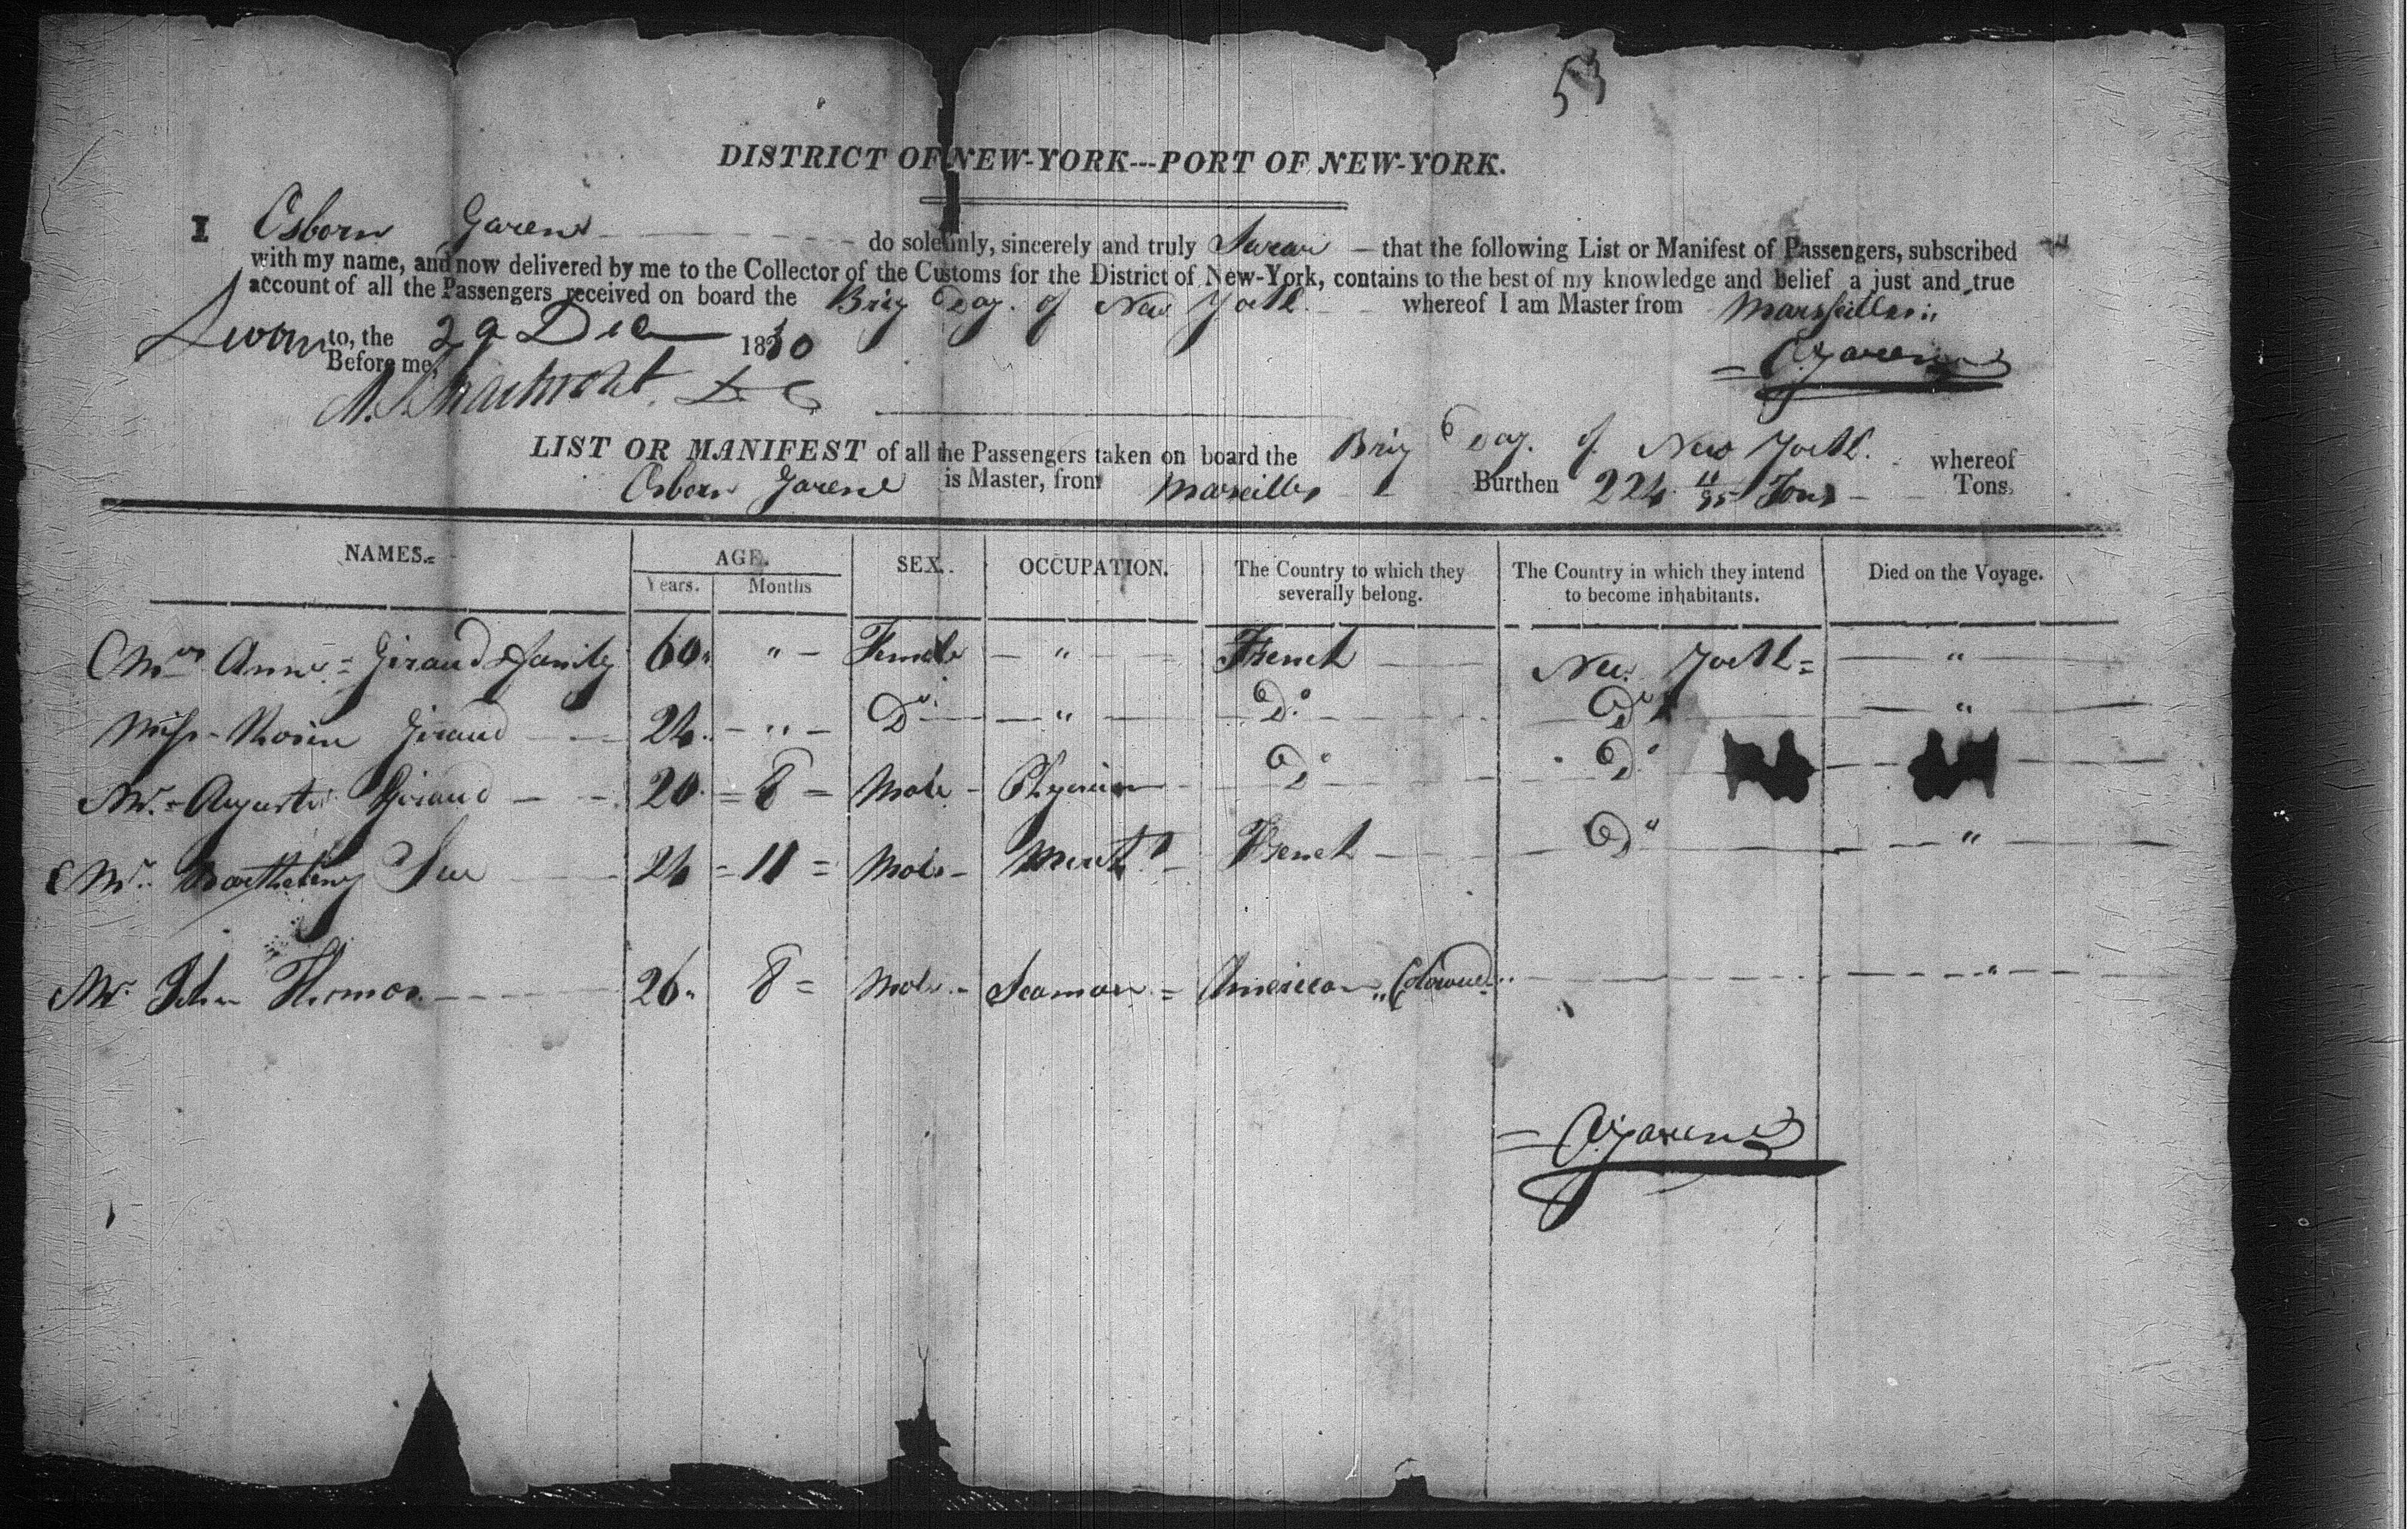 53
DISTRICT OF NEW-YORK---PORT OF NEW-YORK.
I Osborn Garene do solemnly, sincerely and truly Swear that the following List or Manifest of Passengers, subscribed
with my name, and now delivered by me to the Collector of the Customs for the District of New-York, contains to the best of my knowledge and belief a just and true
account of all the Passengers received on board the Brig of New York whereof I am Master from Marseilles
Sworn to, the 29 Dec 1830
Before me,
O Garene
LIST OR MANIFEST of all the Passengers taken on board the Brig of New York. whereof
Osborn Garene is Master, from Marseilles Burthen 224 11/95 Tons Tons.
NAMES. AGE. SEX. OCCUPATION. The Country to which they severally belong. The Country in which they intend to become inhabitants. Died on the Voyage.
Years. Months
Mrs Anne = Giraud & family 60 " Female " French New York = "
Miss Giraud 24 " Do " Do Do "
Mr. Auguste Giraud 20 = 8 = Male Physician Do Do
Mr. Barthelemy 24 = 11 = Male Mercht French Do "
Mr John Thomas 26 8 = Male Seaman = American " Coloured "
= O Garene